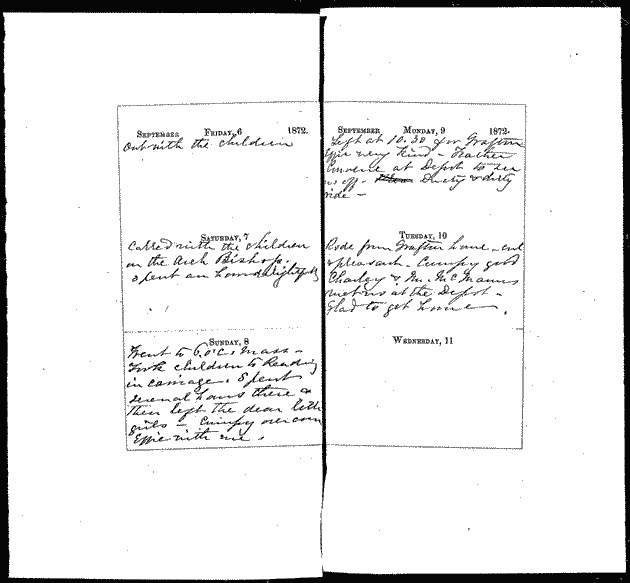 September Friday, 6 1872.
Out with the children
Saturday, 7
Called with the children
on the Arch Bishop.
Spent an hour delightfully
Sunday, 8
Went to 6 o'c. Mass -
Took children to Reading
in carriage. Spent
several hours there &
then left the dear little
girls -
Effie with me.
September Monday, 9 1872.
Left at 10.30 for Grafton
Effie very tired - Father
at Depot to see
us off. Dusty & dirty
ride -
Tuesday, 10
Rode from Grafton home - cool
& pleasant - good
Charley & Mr. McManus
met us at the Depot -
Glad to get home
Wednesday, 11